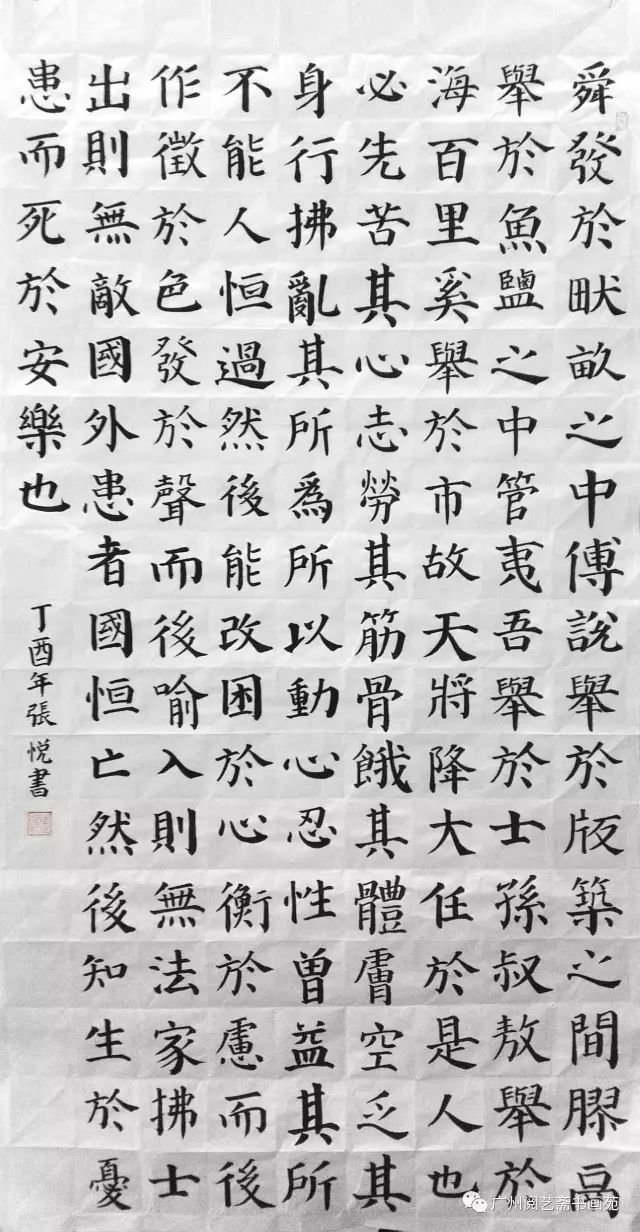 舜發於畎畝之中傅說舉於版築之間膠鬲
舉於魚鹽之中管夷吾舉於士孫叔敖舉於
海百里奚舉於市故天將降大任於是人也
必先苦其心志勞其筋骨餓其體膚空乏其
身行拂亂其所爲所以動心忍性曾益其所
不能人恒過然後能改困於心衡於慮而後
作徵於色發於聲而後喻入則無法家拂士
出則無敵國外患者國恒亡然後知生於憂
患而死於安樂也
丁酉年張悅書
广州阅艺斋书画苑